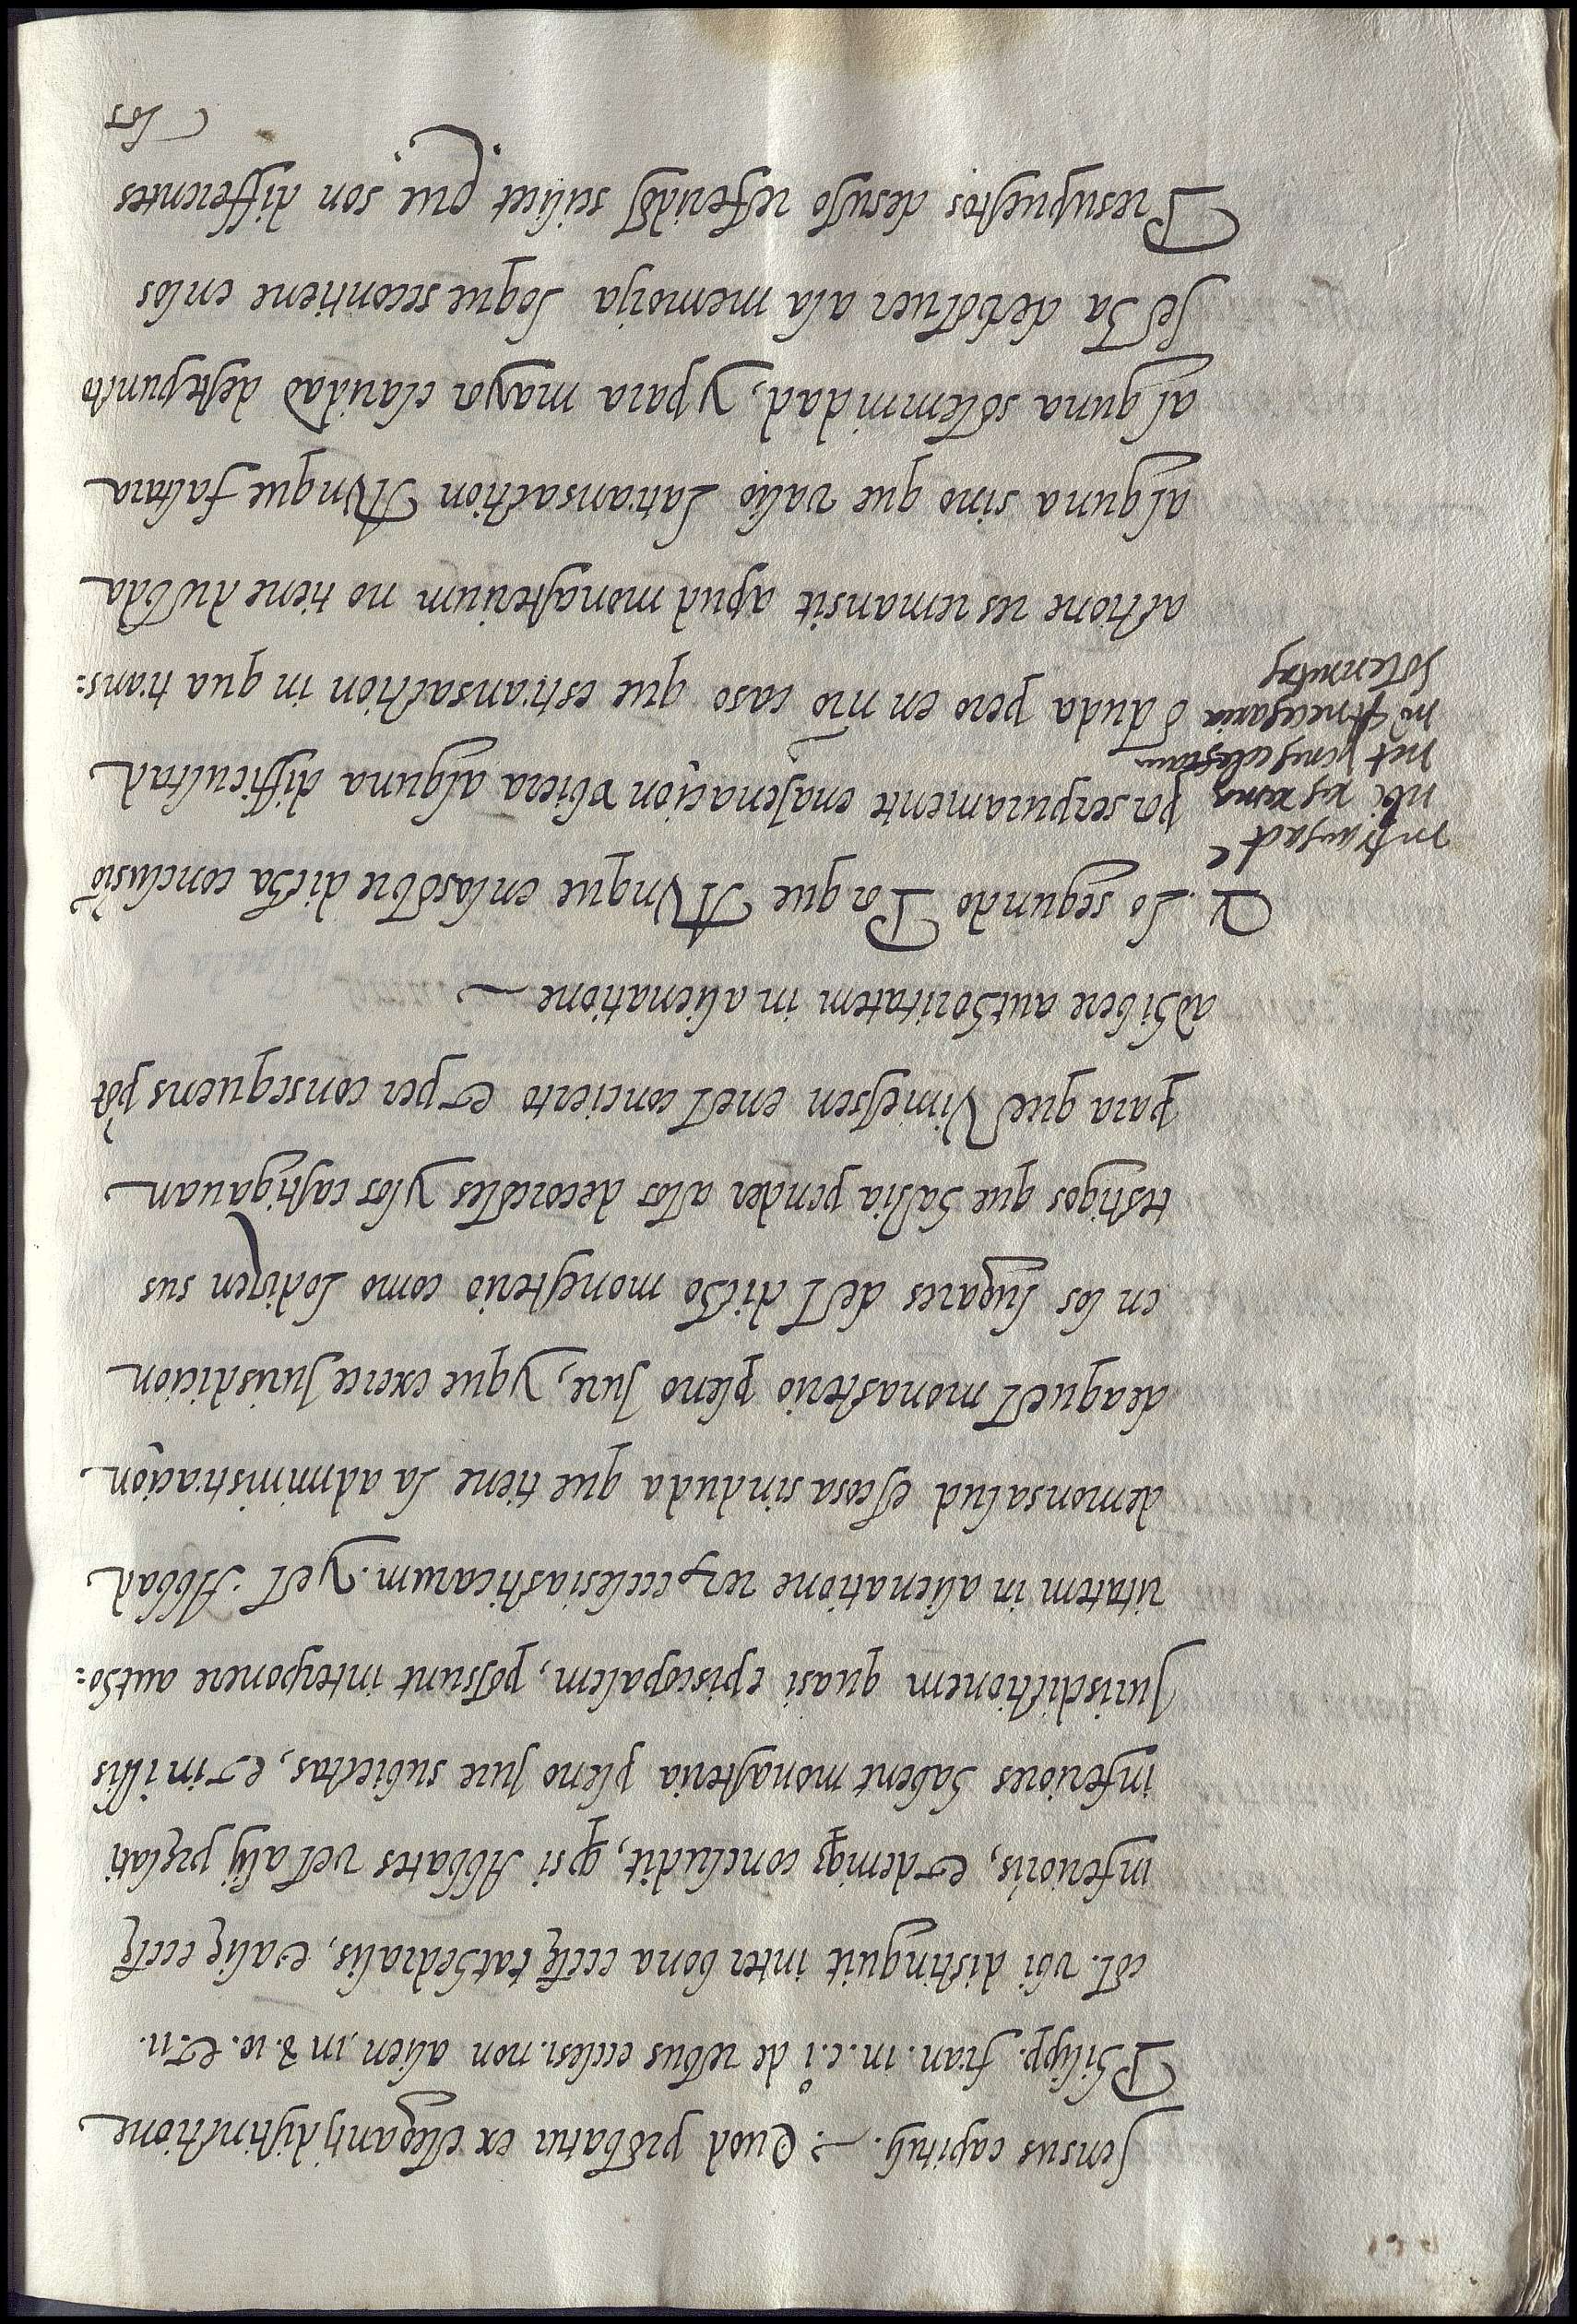 sensus capituli. Quod probatur ex eleganti distinctione
Philipp. fran. in. c. i. de rebus eccles. non alien. in 2. 10. & 11.
col. vbi distinguit inter bona eccłę cathedralis, & alię eccłę
inferioris, & deniq; concludit, q̃ si Abbates vel alij pręlati
inferiores habent monasteria pleno Jure subiectas, & in illis
Jurisdictionem quasi episcopalem, possunt interponere autho:
ritatem in alienatione rerum ecclesiasticarum. y el Abbad
de monsalud es cosa sin duda que tiene la administraçion
de aquel monasterio pleno Jure, y que exerce Jurisdicion
en los lugares del dicho monesterio como lo dizen sus
testigos que hazia prender a los decorcoles y los castigauan
para que viniessen en el concierto & per consequens põt
adhibere authoritatem in alienatione
2. Lo segundo Porque Avnque en la sobre dicha conclusiõ
in transact
vbi res rema
net penes ecclesiam
nõ est necesaria
solennitas
por ser puramente enajenaçion vbiera alguna difficultad
o duda pero en nr̃o caso que es transaction in qua trans:
actione res remansit apud monasterium no tiene dubda
alguna sino que valio la transaction Avnque faltara
alguna solemnidad, y para mayor claridad deste punto
se ha de boluer a la memoria lo que se contiene en los
Presupuestos desuso refferidos scilicet que son differentes
los